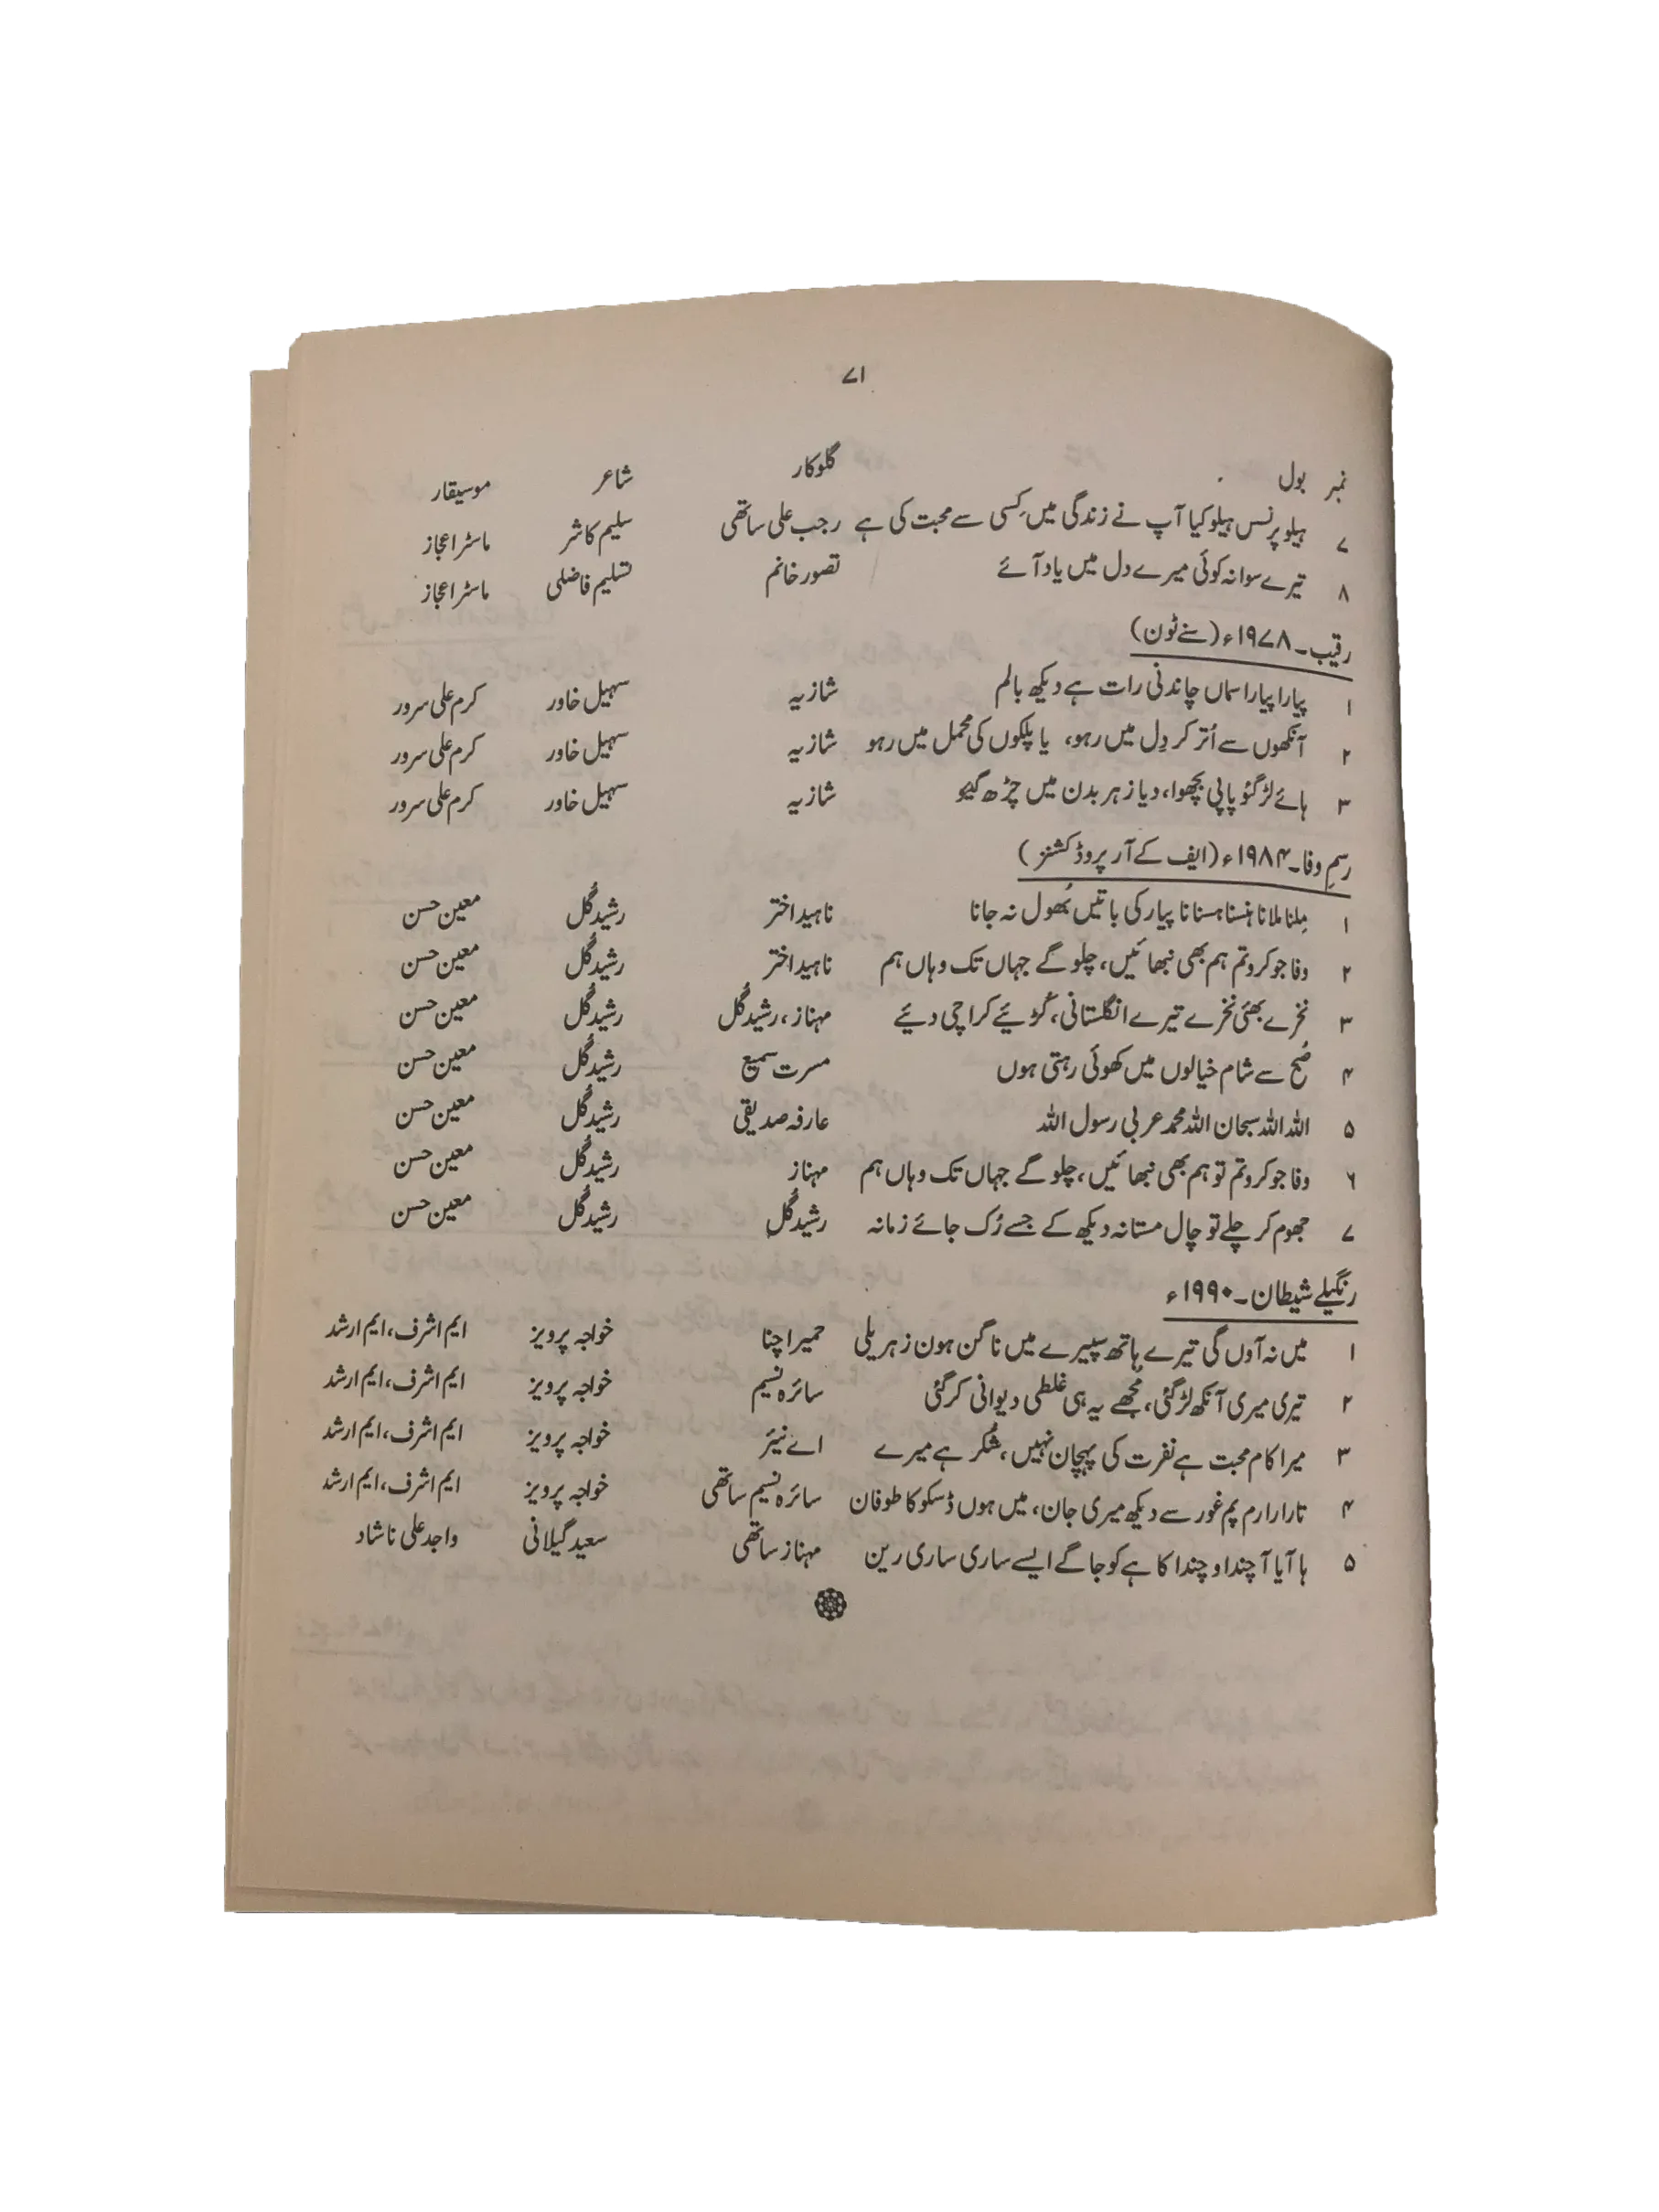 ۷۱
نمبر بول گلوکار شاعر موسیقار
۷ ہیلو پرنس ہیلو کیا آپ نے زندگی میں کِسی سے محبت کی ہے رجب علی ساتھی سلیم کاشر ماسٹر اعجاز
۸ تیرے سوا نہ کوئی میرے دل میں یاد آئے تصور خانم تسلیم فاضلی ماسٹر اعجاز
رقیب۔۱۹۷۸ء (سنے ٹون)
۱ پیارا پیارا سماں چاندنی رات ہے دیکھ بالم شازیہ سہیل خاور کرم علی سرور
۲ آنکھوں سے اُتر کر دِل میں رہو، یا پلکوں کی محمل میں رہو شازیہ سہیل خاور کرم علی سرور
۳ ہائے لڑ گئو پاپی بچھوا، دیا زہر بدن میں چڑھ گیو شازیہ سہیل خاور کرم علی سرور
رسمِ وفا۔۱۹۸۴ء (ایف کے آر پروڈکشنز)
۱ مِلنا ملانا ہنسنا ہسنانا پیار کی باتیں بُھول نہ جانا ناہید اختر رشید گُل معین حسن
۲ وفا جو کرو تم ہم بھی نبھائیں، چلو گے جہاں تک وہاں ہم ناہید اختر رشید گُل معین حسن
۳ نخرے بھئی نخرے تیرے انگلستانی، کُڑئیے کراچی دئیے مہناز، رشید گُل رشید گُل معین حسن
۴ صُبح سے شام خیالوں میں کھوئی رہتی ہوں مسرت سمیع رشید گُل معین حسن
۵ اللہ اللہ سبحان اللہ محمد عربی رسول اللہ عارفہ صدیقی رشید گُل معین حسن
۶ وفا جو کرو تم تو ہم بھی نبھائیں، چلو گے جہاں تک وہاں ہم مہناز رشید گُل معین حسن
۷ جھوم کر چلے تو چال مستانہ دیکھ کے جسے رُک جائے زمانہ رشید گُل رشید گُل معین حسن
رنگیلے شیطان۔۱۹۹۰ء
۱ میں نہ آوں گی تیرے ہاتھ سپیرے میں ناگن ہون زہریلی حمیرا چنا خواجہ پرویز ایم اشرف، ایم ارشد
۲ تیری میری آنکھ لڑ گئی، مُجھے یہ ہی غلطی دیوانی کر گئی سائرہ نسیم خواجہ پرویز ایم اشرف، ایم ارشد
۳ میرا کام محبت ہے نفرت کی پہچان نہیں، شُکر ہے میرے اے نیئر خواجہ پرویز ایم اشرف، ایم ارشد
۴ تارا رارم پم غور سے دیکھ میری جان، میں ہوں ڈسکو کا طوفان سائرہ نسیم ساتھی خواجہ پرویز ایم اشرف، ایم ارشد
۵ ہا آیا آ چندا او چندا کا ہے کو جاگے ایسے ساری ساری رین مہناز ساتھی سعید گیلانی واجد علی ناشاد